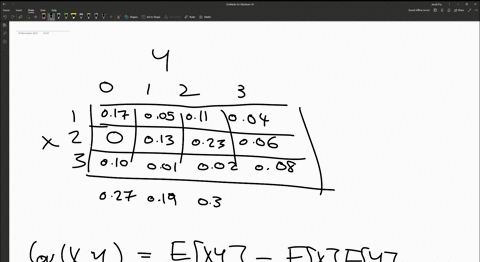 y
0 1 2 3
1 0.17 0.05 0.11 0.04
x 2 0 0.13 0.23 0.06
3 0.10 0.01 0.02 0.08
0.27 0.19 0.3
Cov(X,y) = E[xy] - E[x]E[y]